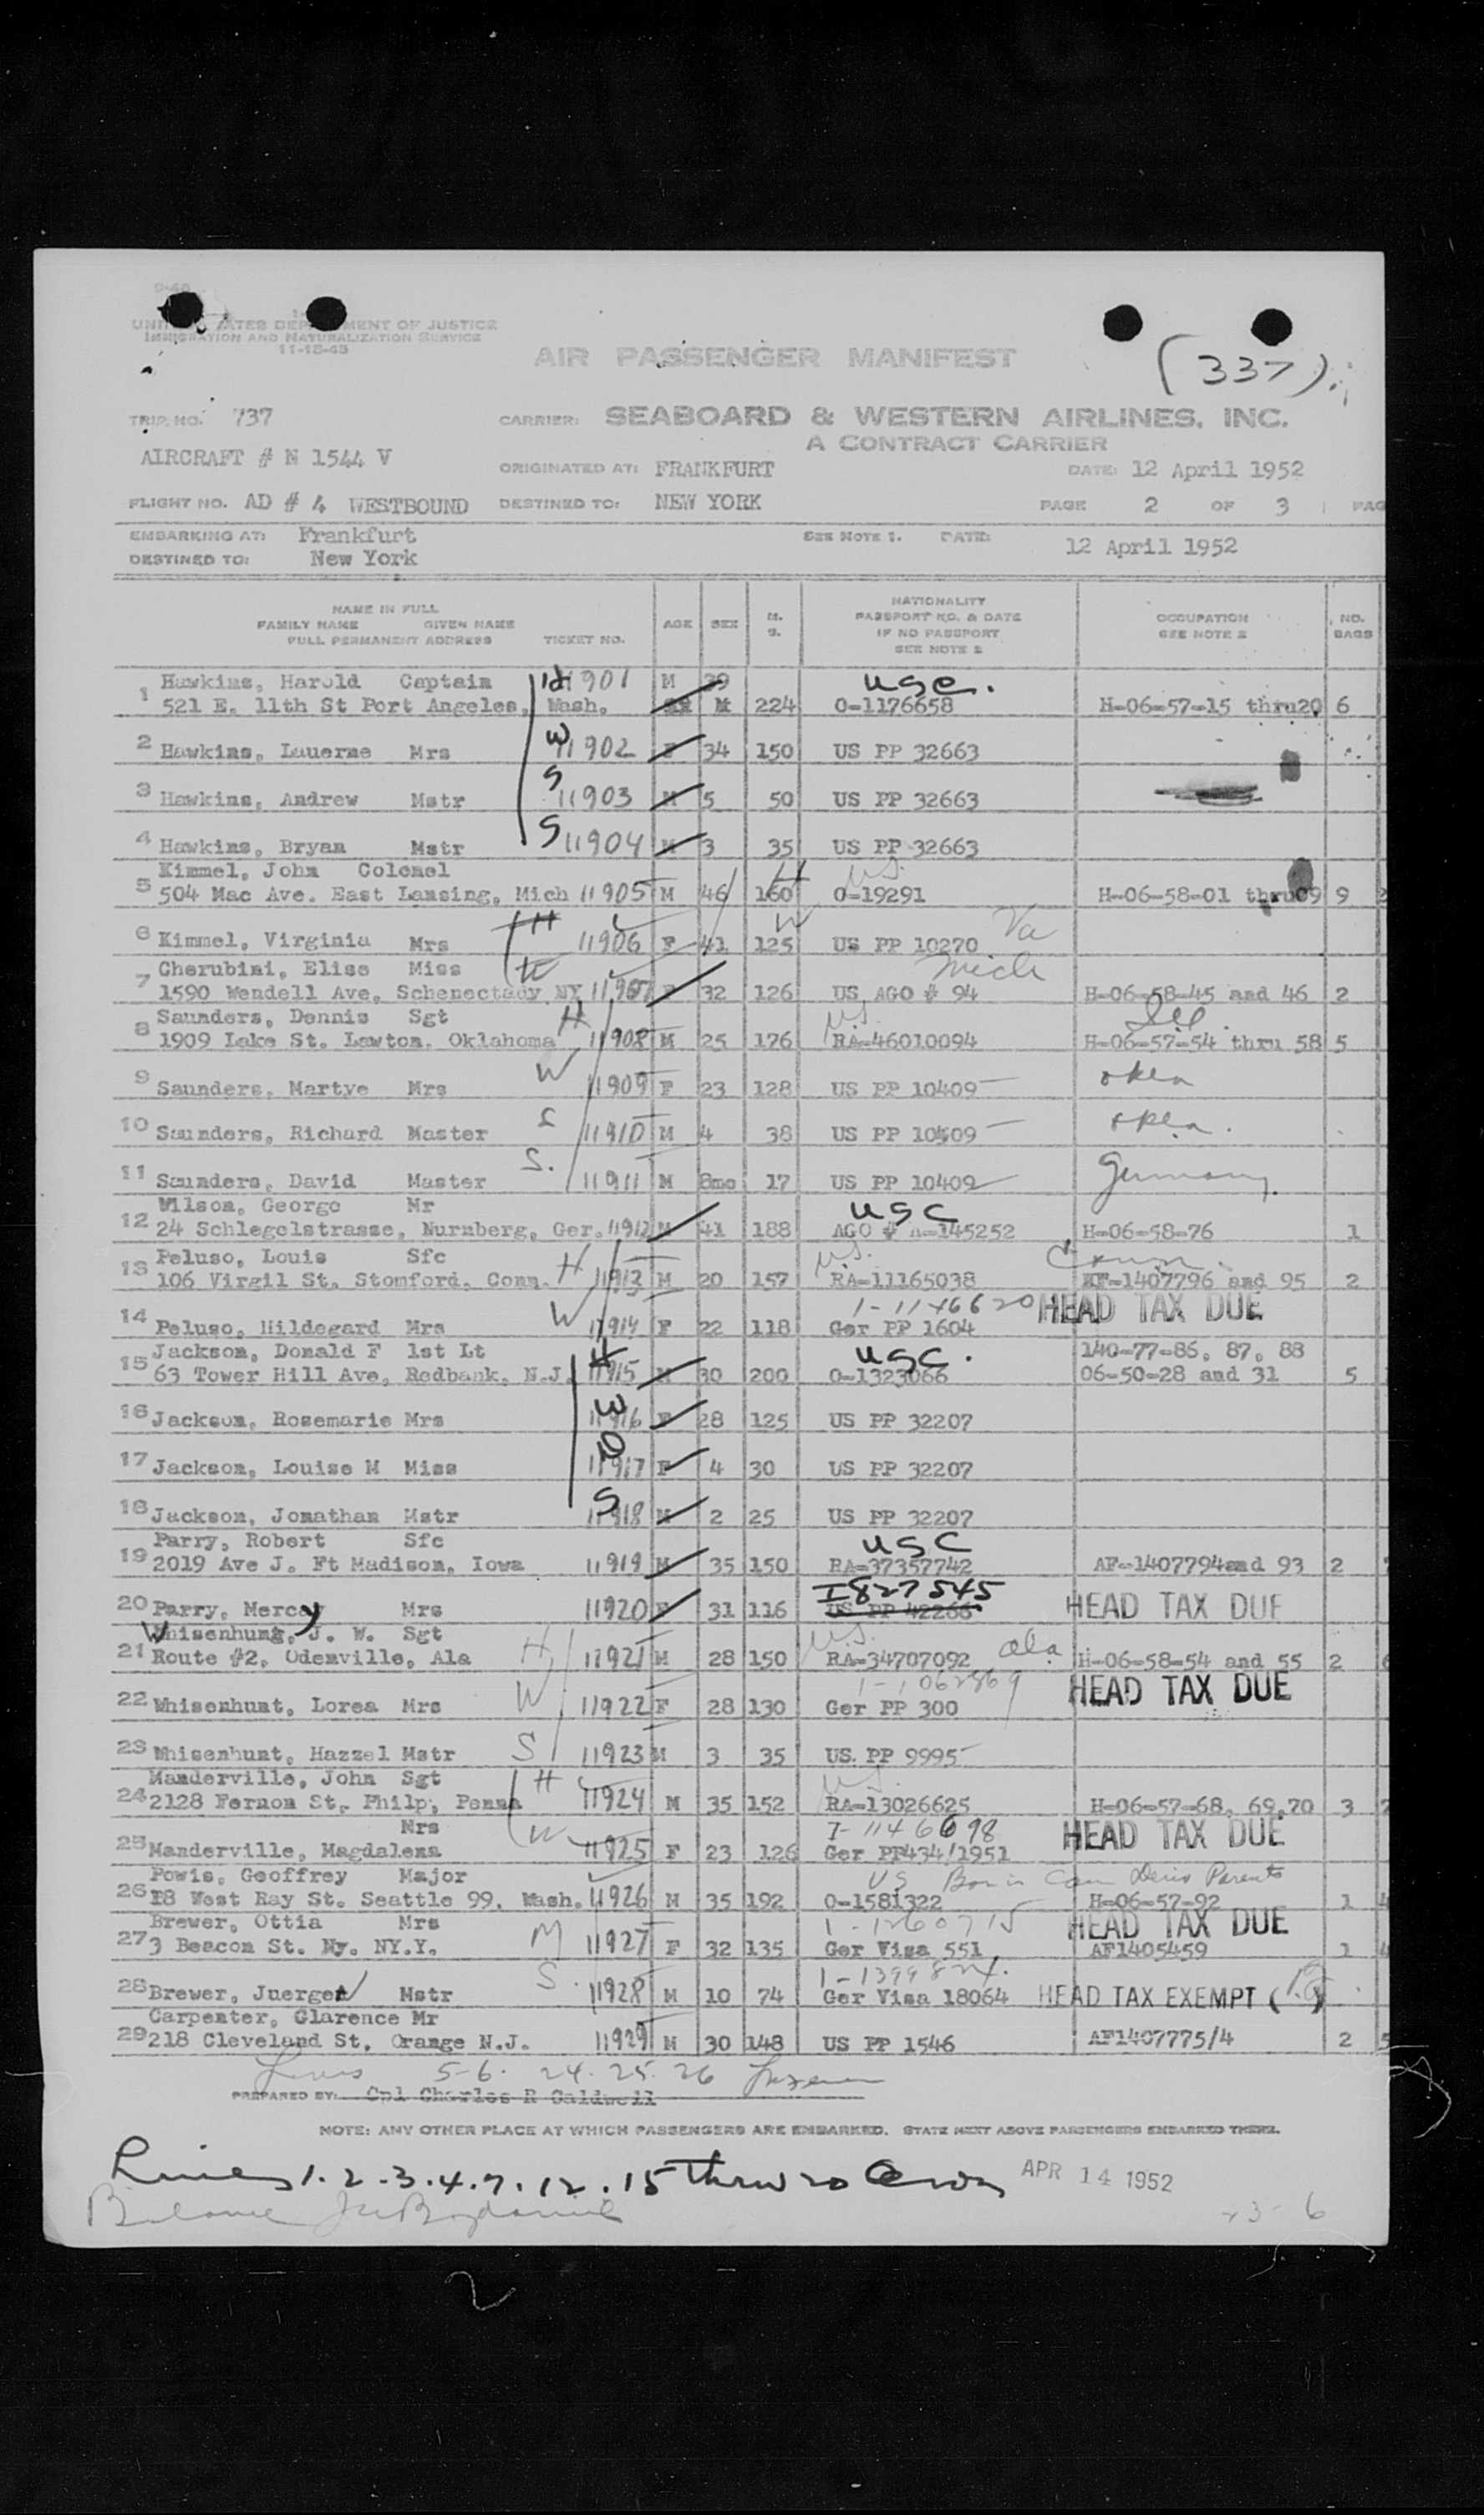 9-48
UNITED STATES DEPARTMENT OF JUSTICE
IMMIGRATION AND NATURALIZATION SERVICE
11-15-45
AIR PASSENGER MANIFEST
(337)
TRIP NO. 737
CARRIER: SEABOARD & WESTERN AIRLINES, INC.
A CONTRACT CARRIER
AIRCRAFT # N 1544 V
ORIGINATED AT: FRANKFURT
DATE: 12 April 1952
FLIGHT NO. AD # 4 WESTBOUND
DESTINED TO: NEW YORK
PAGE 2 OF 3 PAG
EMBARKING AT: Frankfurt
SEE NOTE 1. DATE: 12 April 1952
DESTINED TO: New York
NAME IN FULL
FAMILY NAME GIVEN NAME
FULL PERMANENT ADDRESS TICKET NO. AGE SEX M. S.
NATIONALITY
PASSPORT NO. & DATE
IF NO PASSPORT
SEE NOTE 2
OCCUPATION
SEE NOTE 2
NO. BAGS
Hawkins, Harold Captain H 11901 M 39 USC.
1 521 E. 11th St Port Angeles, Wash. M 224 O-1176658 H-06-57-15 thru20 6
W
2 Hawkins, Lauerne Mrs 11902 F 34 150 US PP 32663
S
3 Hawkins, Andrew Mstr 11903 M 5 50 US PP 32663
S
4 Hawkins, Bryan Mstr 11904 M 3 35 US PP 32663
Kimmel, John Colonel H U.S.
5 504 Mac Ave. East Lansing, Mich 11905 M 46 160 O-19291 H-06-58-01 thru09 9
H W Va
6 Kimmel, Virginia Mrs 11906 F 41 125 US PP 10270
Cherubini, Elise Miss W Mich
7 1590 Wendell Ave, Schenectady NY 11907 F 32 126 US AGO # 94 H-06-58-45 and 46 2
Saunders, Dennis Sgt H U.S.
8 1909 Lake St. Lawton, Oklahoma 11908 M 25 176 RA-46010094 H-06-57-54 thru 58 5
W Okla
9 Saunders, Martye Mrs 11909 F 23 128 US PP 10409
S Okla.
10 Saunders, Richard Master 11910 M 4 38 US PP 10409
S. Germany
11 Saunders, David Master 11911 M 8mo 17 US PP 10409
Wilson, George Mr USC
12 24 Schlegelstrasse, Nurnberg, Ger. 11912 M 41 188 AGO # A-145252 H-06-58-76 1
Peluso, Louis Sfc H U.S. Conn.
13 106 Virgil St. Stomford, Conn. 11913 M 20 157 RA-11165038 AF-1407796 and 95 2
W 1-1146620 HEAD TAX DUE
14 Peluso, Hildegard Mrs 11914 F 22 118 Ger PP 1604
Jackson, Donald F 1st Lt H USC. 140-77-86, 87, 88
15 63 Tower Hill Ave, Redbank, N.J. 11915 M 30 200 O-1323066 06-50-28 and 31 5
W
16 Jackson, Rosemarie Mrs 11916 F 28 125 US PP 32207
D
17 Jackson, Louise M Miss 11917 F 4 30 US PP 32207
S
18 Jackson, Jonathan Mstr 11918 M 2 25 US PP 32207
Parry, Robert Sfc USC
19 2019 Ave J. Ft Madison, Iowa 11919 M 35 150 RA-37357742 AF-1407794and 93 2
I827545
20 Parry, Mercey Mrs 11920 F 31 116 US PP 42266 HEAD TAX DUE
Whisenhunt, J. W. Sgt H U.S. Ala
21 Route #2, Odenville, Ala 11921 M 28 150 RA-34707092 H-06-58-54 and 55 2
W 1-1062869 HEAD TAX DUE
22 Whisenhunt, Lorea Mrs 11922 F 28 130 Ger PP 300
23 Whisenhunt, Hazzel Mstr S 11923 M 3 35 US. PP 9995
Manderville, John Sgt H U.S.
24 2128 Fernon St. Philp, Penna 11924 M 35 152 RA-13026625 H-06-57-68, 69,70 3
Mrs W I-1146698 HEAD TAX DUE
25 Manderville, Magdalena 11925 F 23 126 Ger PP434/1951
Powis, Geoffrey Major US Born in Can Parents
26 18 West Ray St. Seattle 99, Wash. 11926 M 35 192 O-1581322 H-06-57-92 1
Brewer, Ottia Mrs M 1-1260715 HEAD TAX DUE
27 3 Beacon St. Ny. NY.Y. 11927 F 32 135 Ger Visa 551 AF1405459 1
S. 1-1399824.
28 Brewer, Juergen Mstr 11928 M 10 74 Ger Visa 18064 HEAD TAX EXEMPT ( )
Carpenter, Clarence Mr
29 218 Cleveland St. Orange N.J. 11929 M 30 148 US PP 1546 AF1407775/4 2
Lines 5-6. 24. 25. 26
PREPARED BY: Cpl Charles R Caldwell
NOTE: ANY OTHER PLACE AT WHICH PASSENGERS ARE EMBARKED. STATE NEXT ABOVE PASSENGERS EMBARKED THERE.
Lines 1. 2. 3. 4. 7. 12. 15 thru 20
APR 14 1952
Balance
23-6
2